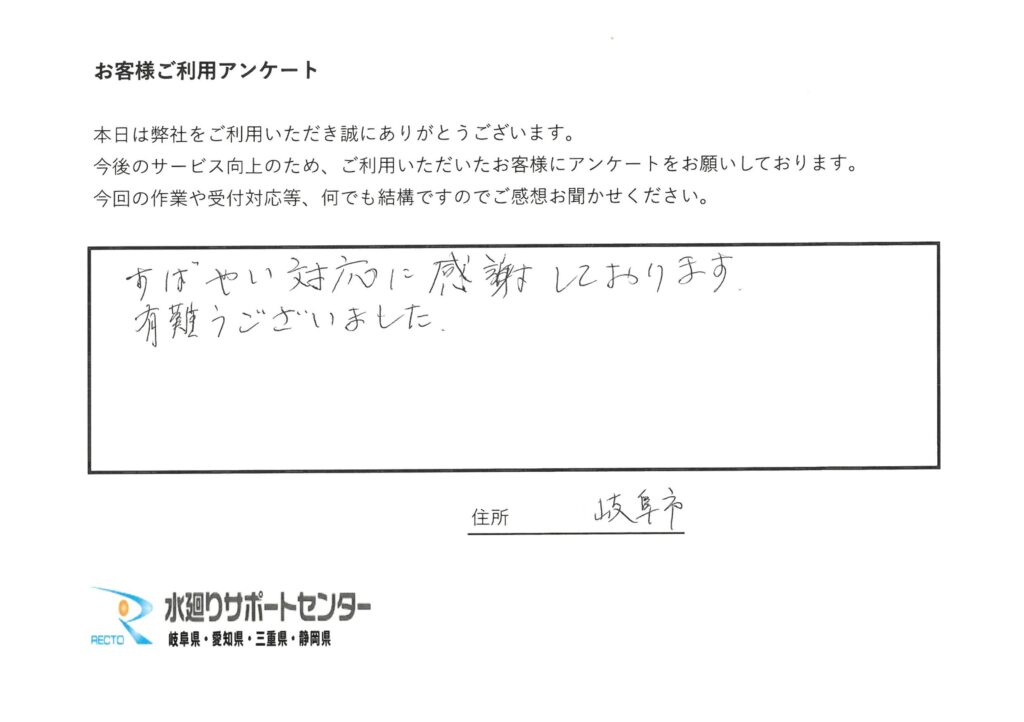 お客様ご利用アンケート
本日は弊社をご利用いただき誠にありがとうございます。
今後のサービス向上のため、ご利用いただいたお客様にアンケートをお願いしております。
今回の作業や受付対応等、何でも結構ですのでご感想お聞かせください。
すばやい対応に感謝しております.
有難うございました.
住所 岐阜市
RECTO
水廻りサポートセンター
岐阜県・愛知県・三重県・静岡県